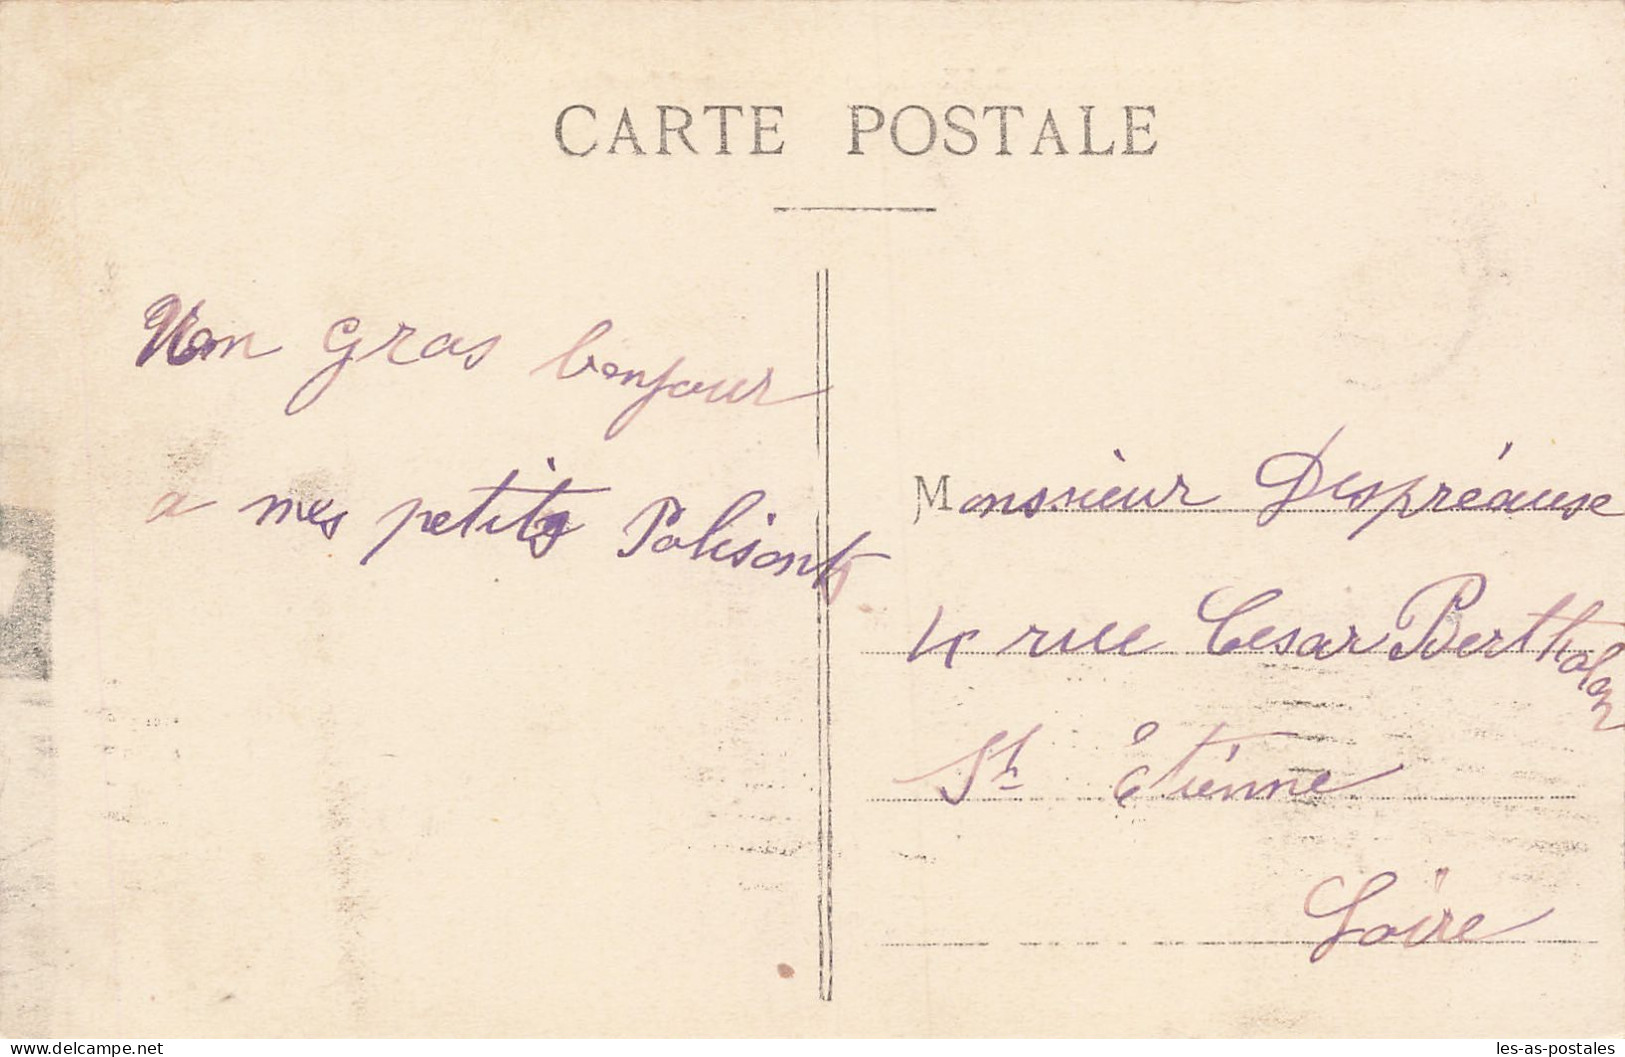 CARTE POSTALE
Mon gras bonjour
a mes petits Polisonts
Monssieur Despréause
4 rue Cesar Bertholon
St étiénne
Loire
delcampe.net
les-as-postales